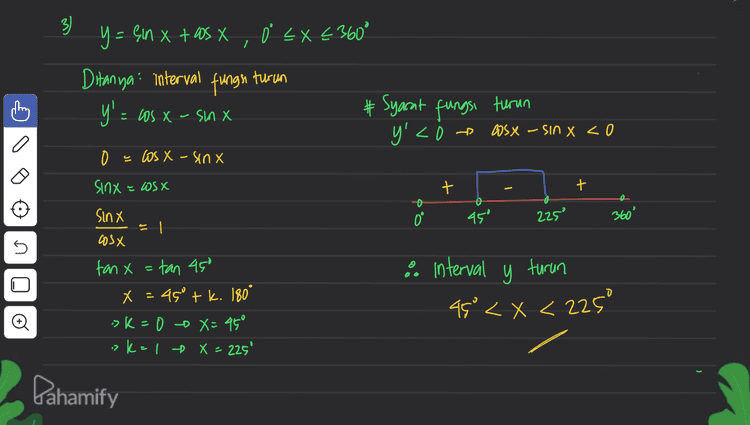 3) y = sin x + cos x , 0° ≤ x ≤ 360°
Ditanya: interval fungsi turun
y' = cos x - sin x
0 = cos x - sin x
sin x = cos x
sin x / cos x = 1
tan x = tan 45°
x = 45° + k. 180°
→ k = 0 → x = 45°
→ k = 1 → x = 225°
# Syarat fungsi turun
y' < 0 → cos x - sin x < 0
+ - +
0° 45° 225° 360°
∴ Interval y turun
45° < x < 225°
Pahamify